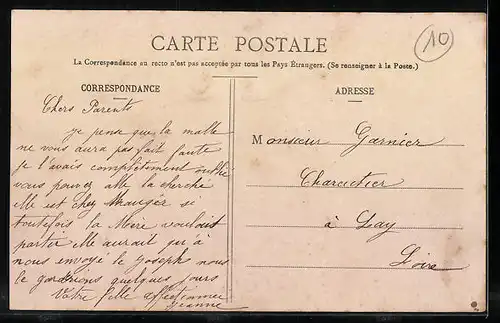 CARTE POSTALE
10
La Correspondance au recto n'est pas acceptée par tous les Pays Étrangers. (Se renseigner à la Poste.)
CORRESPONDANCE
ADRESSE
Chers Parents
je pense que la malle
ne vous aura pas fait faute
je l'avais complètement oublié
vous pouvez alle la cherche
elle est chez si
toutefois la Mère voulait
partir elle aurait qu'à
nous envoyé le Joseph nous
le garderions quelques jours
Votre fille affectionnee
Jeanne
Monsieur Garnier
Charcutier
à Lay
Loire